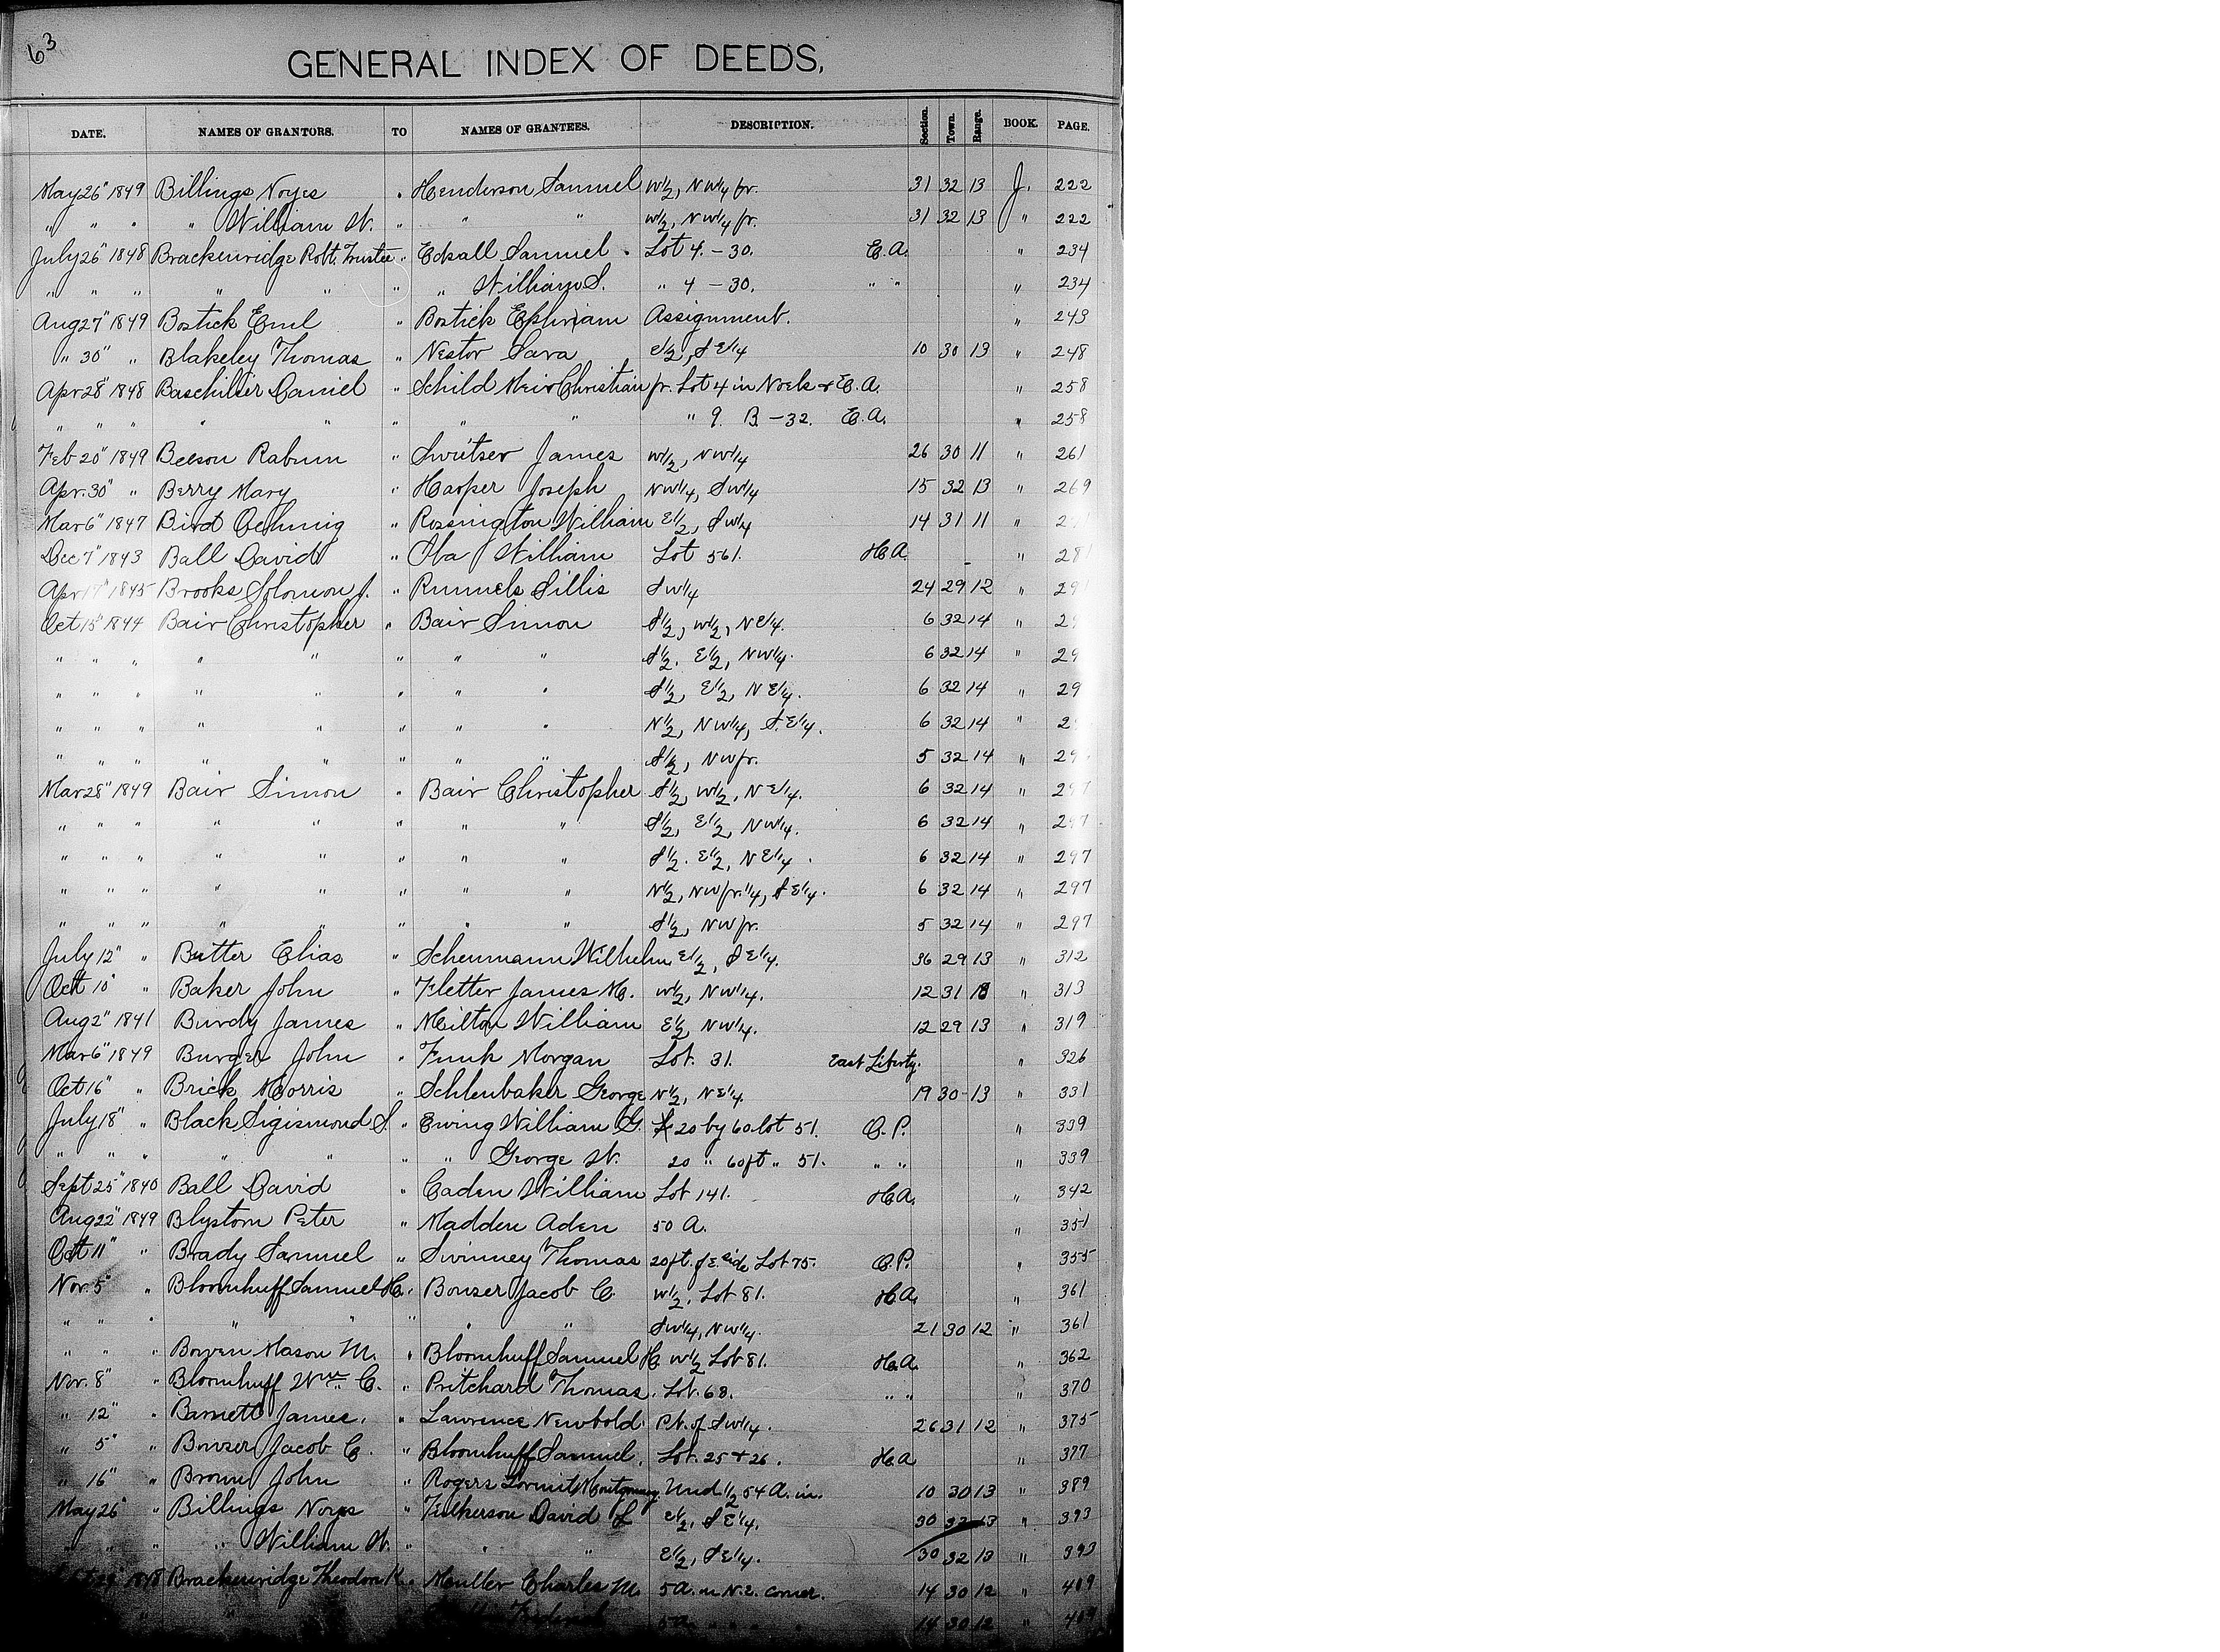 63
GENERAL INDEX OF DEEDS,
DATE. NAMES OF GRANTORS. TO NAMES OF GRANTEES. DESCRIPTION. Section. Town. Range. BOOK. PAGE.
May 26" 1849 Billings Noyes " Henderson Samuel W1/2, NW1/4 fr. 31 32 13 J. 222
" " " " William W. " " " W1/2, NW1/4 fr. 31 32 13 " 222
July 26" 1848 Brackenridge Robt. Trustee " Edsall Samuel Lot 4. - 30. E.A. " 234
" " " " " " " William S. " 4 - 30. " " " 234
Aug 27" 1849 Bostick Eml " Bostick Ephriam Assignment. " 243
" 30" " Blakeley Thomas " Nestor Sara E1/2, SE1/4 10 30 13 " 248
Apr 28" 1848 Daniel " Schild Meir Christian fr. Lot 4 in E.A. " 258
" " " " " " " " " 9. B - 32. E.A. " 258
Feb 20" 1849 Beeson " James W1/2, NW1/4 26 30 11 " 261
Apr. 30" " Berry Mary " Harper Joseph NW1/4, SW1/4 15 32 13 " 269
Mar 6" 1847 Bird " Rossington William E1/2, SW1/4 14 31 11 "
Dec 7" 1843 Ball David " William Lot 561. H.A. " 281
Apr 1845 Brooks Solomon J. " Runnels Sillis SW1/4 24 29 12 " 29
Oct 15" 1844 Bair Christopher " Bair Simon S1/2, W1/2, NE1/4. 6 32 14 " 29
" " " " " " " " S1/2. E1/2, NW1/4. 6 32 14 " 29
" " " " " " " " S1/2, E1/2, NE1/4. 6 32 14 " 29
" " " " " " " " N1/2, NW1/4, S.E1/4. 6 32 14 " 2
" " " " " " " " S1/2, NW fr. 5 32 14 " 29
Mar 28" 1849 Bair Simon " Bair Christopher S1/2, W1/2, NE1/4. 6 32 14 " 297
" " " " " " " " S1/2, E1/2, NW1/4. 6 32 14 " 297
" " " " " " " " S1/2. E1/2, NE1/4. 6 32 14 " 297
" " " " " " " " N1/2, NW fr. 1/4, SE1/4. 6 32 14 " 297
" " " " " " " " S1/2, NW fr. 5 32 14 " 297
July 12" " Butter Elias " Scheumann Wilhelm E1/2, SE1/4. 36 29 13 " 312
Oct 10" " Baker John " Fletter James H. W1/2, NW1/4. 12 31 " 313
Aug 2" 1841 Burdy James " Milton William E1/2, NW1/4. 12 29 13 " 319
Mar 6" 1849 Burger John " Funk Morgan Lot. 31. East Liberty. " 326
Oct 16" " Brick Morris " Schlenbaker George N1/2, NE1/4 19 30 13 " 331
July 18" " Black Sigismond S. " Ewing William G. 20 by 60 lot 51. O.P. " 339
" " " " " " " George W. 20 " 60 ft " 51. " " " 339
Sept 25" 1840 Ball David " Caden William Lot 141. H.A. " 342
Aug 22" 1849 Blystom Peter " Madden Aden 50 A. " 351
Oct 11" " Brady Samuel " Swinney Thomas 20 ft. of E. side Lot 75. O.P. " 355
Nov. 5" " Bloomhuff Samuel H. " Bouser Jacob C W1/2, Lot 81. H.A. " 361
" " " " " " " " SW1/4, NW1/4. 21 30 12 " 361
" " " Bowen Mason M. " Bloomhuff Samuel H. W1/2 Lot 81. H.A. " 362
Nov. 8" " Bloomhuff Wm C. " Pritchard Thomas. Lot. 68. " " " 370
" 12" " Barnett James. " Lawrence Newbold Pt. of SW1/4. 26 31 12 " 375
" 5" " Bowser Jacob C. " Bloomhuff Samuel. Lot. 25 + 26. H.A. " 377
" 16" " Brown John " Rogers Montgomery Und. 1/2 54 A. in. 10 30 13 " 389
May 26" " Billings Noyes " Fulkerson David L E1/2, SE1/4. 30 32 13 " 393
" " " " William W. " " " E1/2, SE1/4. 30 32 13 " 393
Brackenridge Theodore K. " Muller Charles M. 5 A. in N.E. corner. 14 30 12 " 409
" Frederick 5 A. " " " 14 30 12 " 409